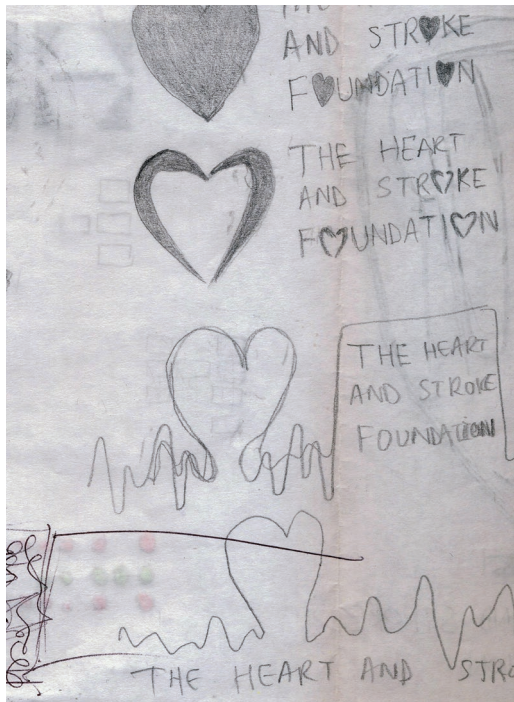 AND STROKE
FOUNDATION
THE HEART
AND STROKE
FOUNDATION
THE HEART
AND STROKE
FOUNDATION
THE HEART AND